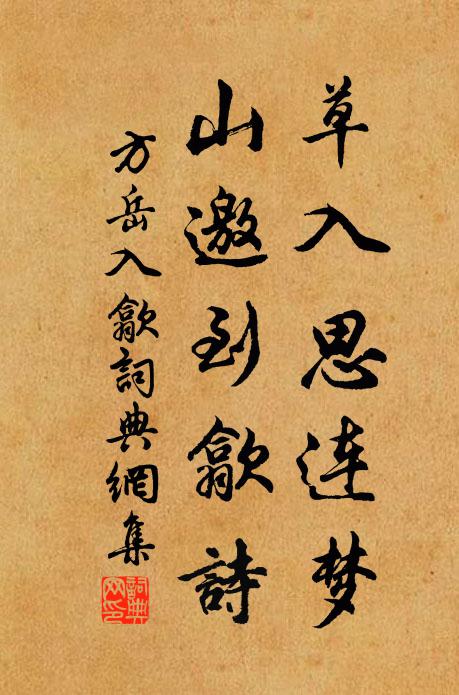 草入思连梦
山邀到歙詩
方岳入歙詞典網集
詞典网印